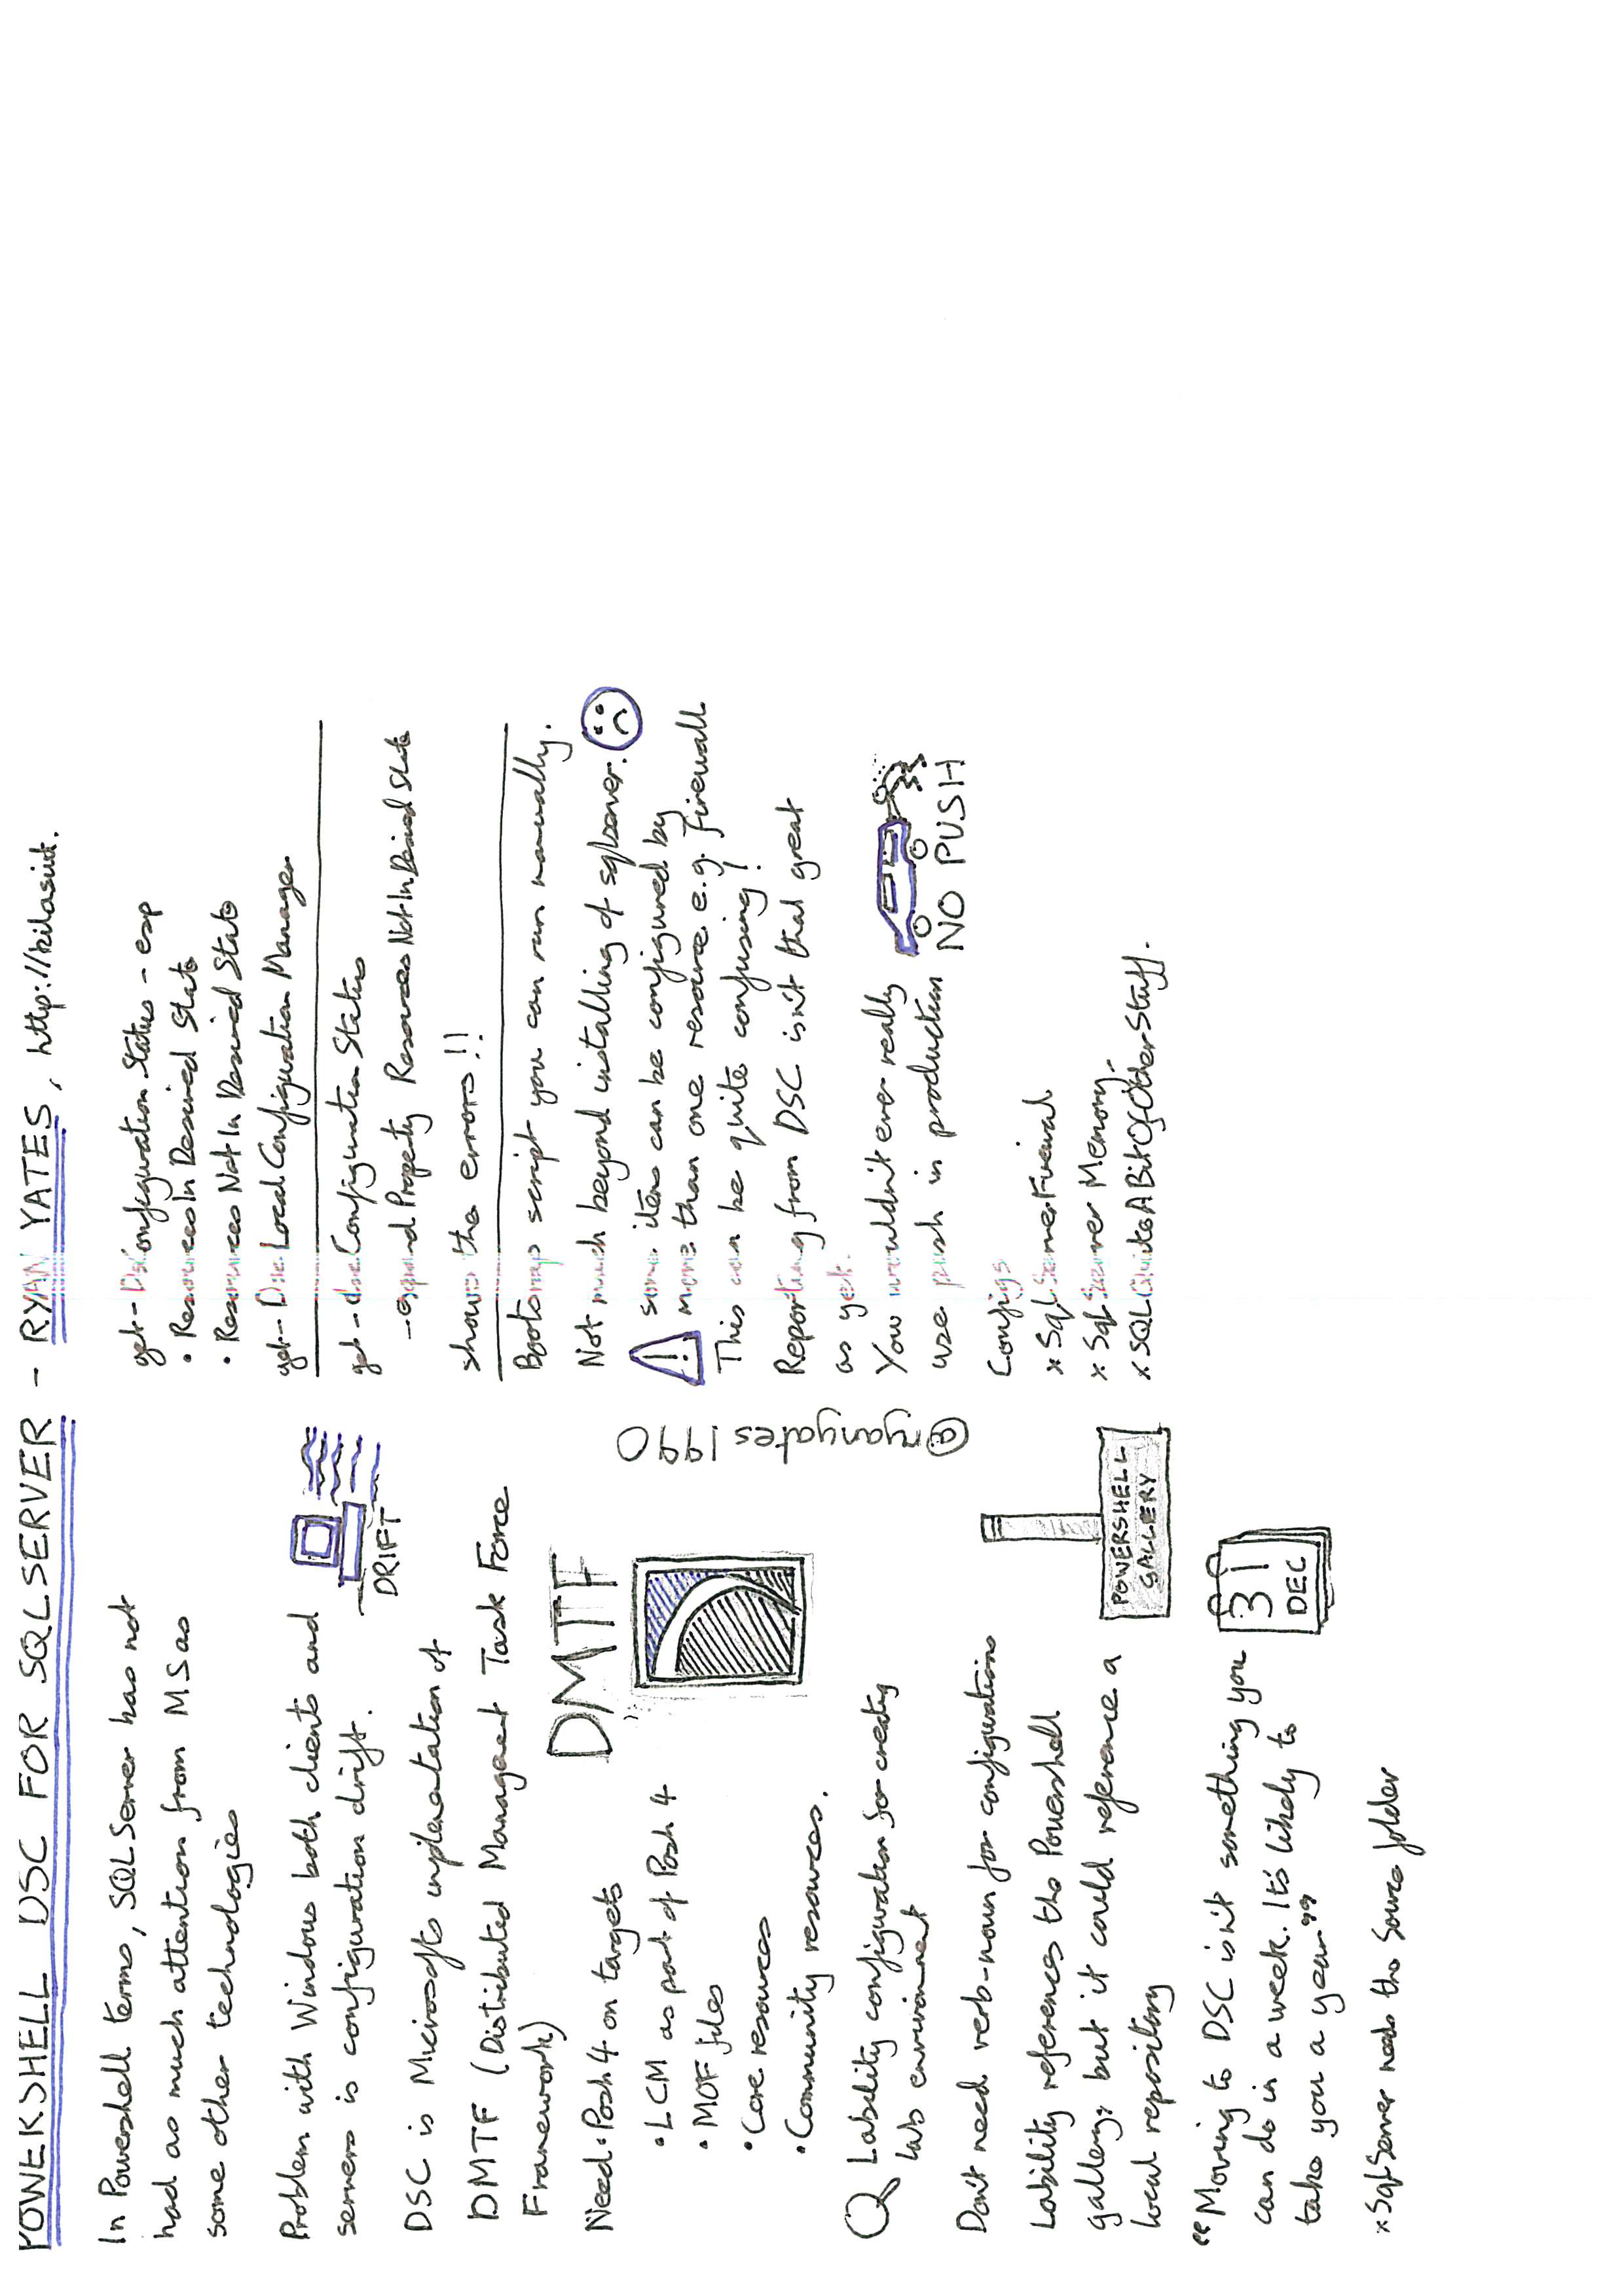 POWERSHELL DSC FOR SQLSERVER - RYAN YATES, http://kilasuit.
In Powershell terms, SQL Server has not
had as much attention from MS as
some other technologies
Problem with Windows both clients and
servers is configuration drift.
DRIFT
DSC is Microsofts implementation of
DMTF (Distributed Management Task Force
Framework)
DMTF
Need: Posh 4 on targets
• LCM as part of Posh 4
• MOF files
• Core resources
• Community resources.
Lability configuration for creating
lab environment
Don't need verb-noun for configurations
Lability references the Powershell
gallery, but it could reference a
local repository
POWERSHELL
GALLERY
“Moving to DSC isn't something you
can do in a week. It's likely to
take you a year”
31
DEC
x SqlServer needs the Source folder
@ryanyates1990
get-DscConfiguration Status - esp
• Resources In Desired State
• Resources Not In Desired State
get-Dsc Local Configuration Manager
get-dsc Configuration Status
-expand Property Resources Not In Desired State
shows the errors!!
Bootstrap script you can run manually.
Not much beyond installing of sqlserver.
! some items can be configured by
more than one resource e.g. firewall
This can be quite confusing!
Reporting from DSC isn't that great
as yet.
You wouldn't ever really
use push in production
NO PUSH
Configs
x SqlServerFirewall
x SqlServer Memory
x SQLQuiteABitOfOtherStuff.